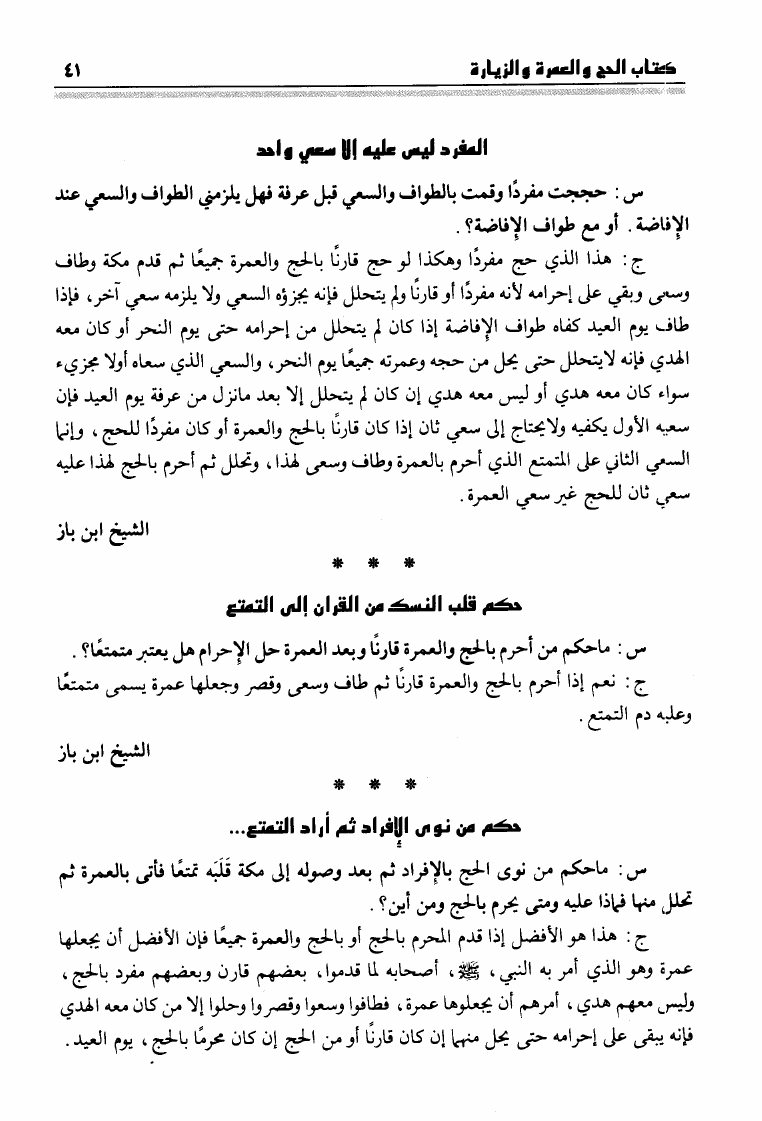 كتاب الحج والعمرة والزيارة ٤١
المفرد ليس عليه إلا سعي واحد
س : حججت مفردًا وقمت بالطواف والسعي قبل عرفة فهل يلزمني الطواف والسعي عند
الإفاضة . أو مع طواف الإفاضة؟ .
ج : هذا الذي حج مفردًا وهكذا لو حج قارنًا بالحج والعمرة جميعًا ثم قدم مكة وطاف
وسعى وبقي على إحرامه لأنه مفردًا أو قارنًا ولم يتحلل فإنه يجزؤه السعي ولا يلزمه سعي آخر، فإذا
طاف يوم العيد كفاه طواف الإفاضة إذا كان لم يتحلل من إحرامه حتى يوم النحر أو كان معه
الهدي فإنه لايتحلل حتى يحل من حجه وعمرته جميعًا يوم النحر، والسعي الذي سعاه أولا مجزيء
سواء كان معه هدي أو ليس معه هدي إن كان لم يتحلل إلا بعد مانزل من عرفة يوم العيد فإن
سعيه الأول يكفيه ولايحتاج إلى سعي ثان إذا كان قارنًا بالحج والعمرة أو كان مفردًا للحج ، وإنما
السعي الثاني على المتمتع الذي أحرم بالعمرة وطاف وسعى لهذا ، وتحلل ثم أحرم بالحج لهذا عليه
سعي ثان للحج غير سعي العمرة .
الشيخ ابن باز
* * *
حكم قلب النسك من القران إلى التمتع
س : ماحكم من أحرم بالحج والعمرة قارنًا وبعد العمرة حل الإحرام هل يعتبر متمتعًا؟ .
ج : نعم إذا أحرم بالحج والعمرة قارنًا ثم طاف وسعى وقصر وجعلها عمرة يسمى متمتعًا
وعليه دم التمتع .
الشيخ ابن باز
* * *
حكم من نوى الإفراد ثم أراد التمتع...
س : ماحكم من نوى الحج بالإفراد ثم بعد وصوله إلى مكة قَلَبَه تمتعًا فأتى بالعمرة ثم
تحلل منها فماذا عليه ومتى يحرم بالحج ومن أين؟ .
ج : هذا هو الأفضل إذا قدم المحرم بالحج أو بالحج والعمرة جميعًا فإن الأفضل أن يجعلها
عمرة وهو الذي أمر به النبي ، ﷺ ، أصحابه لما قدموا ، بعضهم قارن وبعضهم مفرد بالحج ،
وليس معهم هدي ، أمرهم أن يجعلوها عمرة ، فطافوا وسعوا وقصروا وحلوا إلا من كان معه الهدي
فإنه يبقى على إحرامه حتى يحل منهما إن كان قارنًا أو من الحج إن كان محرمًا بالحج ، يوم العيد .